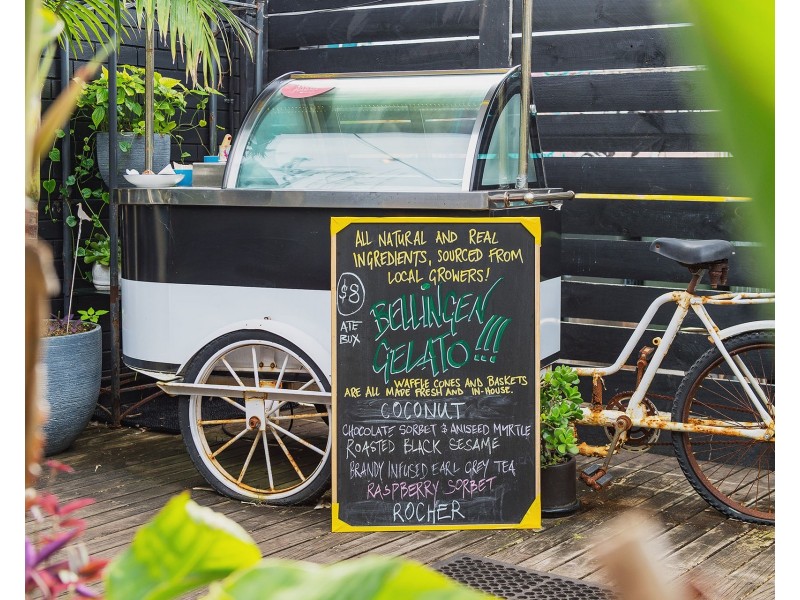 ALL NATURAL AND REAL
INGREDIENTS, SOURCED FROM
LOCAL GROWERS!
$8
ATE
BUX
BELLINGEN
GELATO!!!
WAFFLE CONES AND BASKETS
ARE ALL MADE FRESH AND IN-HOUSE.
COCONUT
CHOCOLATE SORBET & ANISEED MYRTLE
ROASTED BLACK SESAME
BRANDY INFUSED EARL GREY TEA
RASPBERRY SORBET
ROCHER